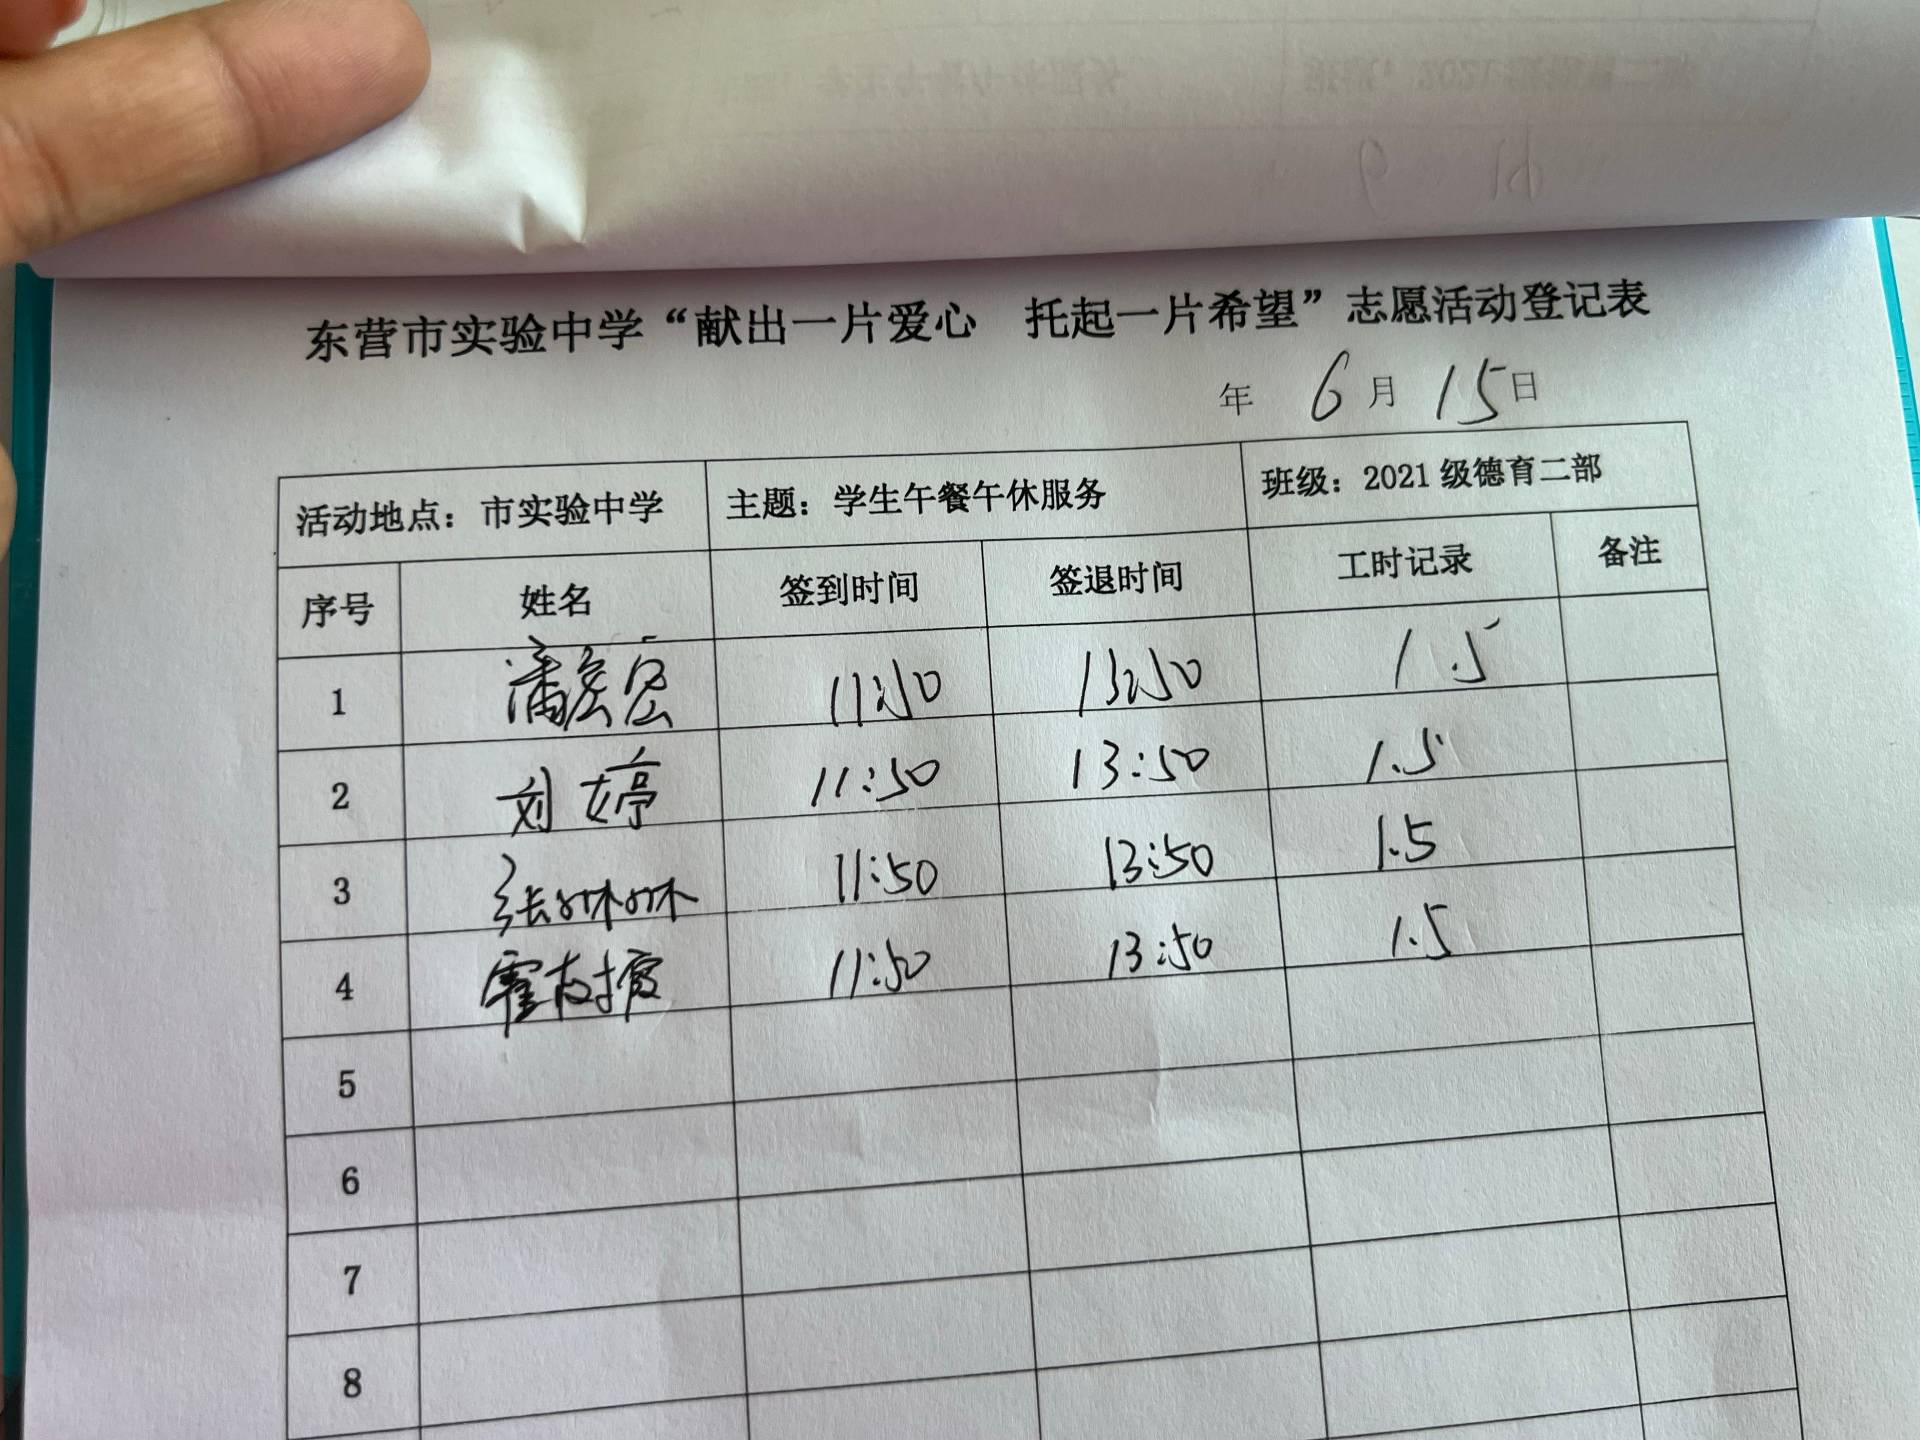 东营市实验中学“献出一片爱心 托起一片希望”志愿活动登记表
年 6月 15日
活动地点：市实验中学 主题：学生午餐午休服务 班级：2021级德育二部
序号 姓名 签到时间 签退时间 工时记录 备注
1 潘 11:50 13:50 1.5
2 刘婷 11:50 13:50 1.5
3 张林林 11:50 13:50 1.5
4 霍 11:50 13:50 1.5
5
6
7
8